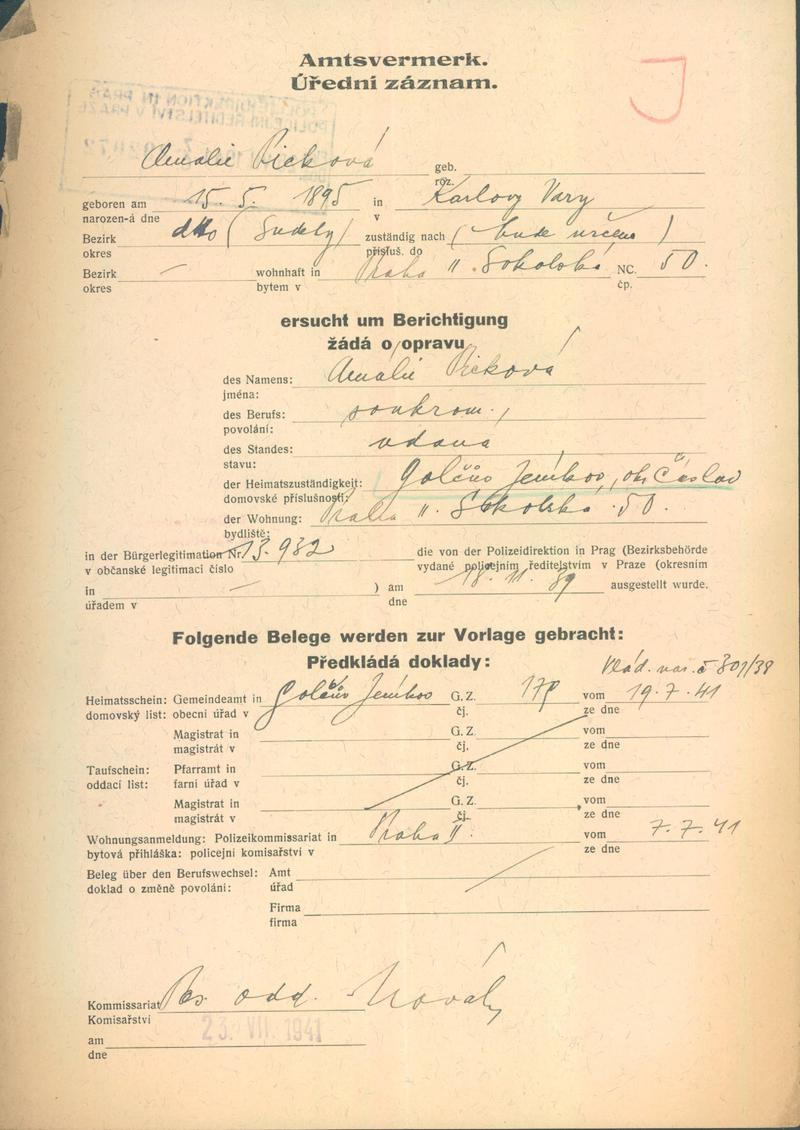 Amtsvermerk.
Úřední záznam.
J
Amalie Picková geb.
roz.
geboren am 15. 5. 1895 in Karlovy Vary
narozen-á dne v
Bezirk dtto (Sudety) zuständig nach (bude určena)
okres přísluš. do
Bezirk — wohnhaft in Praha II. Sokolská NC. 50.
okres bytem v čp.
ersucht um Berichtigung
žádá o opravu
des Namens: Amalie Picková
jména:
des Berufs: soukrom.
povolání:
des Standes: vdaná
stavu:
der Heimatszuständigkeit: Golčův Jeníkov, okr. Čáslav
domovské příslušnosti:
der Wohnung: Praha II. Sokolská 50.
bydliště:
in der Bürgerlegitimation Nr. 13.932 die von der Polizeidirektion in Prag (Bezirksbehörde
v občanské legitimaci číslo vydané policejním ředitelstvím v Praze (okresním
in — ) am 18. 11. 39 ausgestellt wurde.
úřadem v dne
Folgende Belege werden zur Vorlage gebracht:
Předkládá doklady:
Vlád. nař. č 301/38
Heimatsschein: Gemeindeamt in Golčův Jeníkov G. Z. vom 19. 7. 41
domovský list: obecní úřad v čj. ze dne
Magistrat in G. Z. vom
magistrát v čj. ze dne
Taufschein: Pfarramt in G. Z. vom
oddací list: farní úřad v čj. ze dne
Magistrat in G. Z. vom
magistrát v čj. ze dne
Wohnungsanmeldung: Polizeikommissariat in Praha II. vom 7. 7. 41
bytová přihláška: policejní komisařství v ze dne
Beleg über den Berufswechsel: Amt
doklad o změně povolání: úřad
Firma
firma
Kommissariat odd.
Komisařství
23. VII. 1941
am
dne